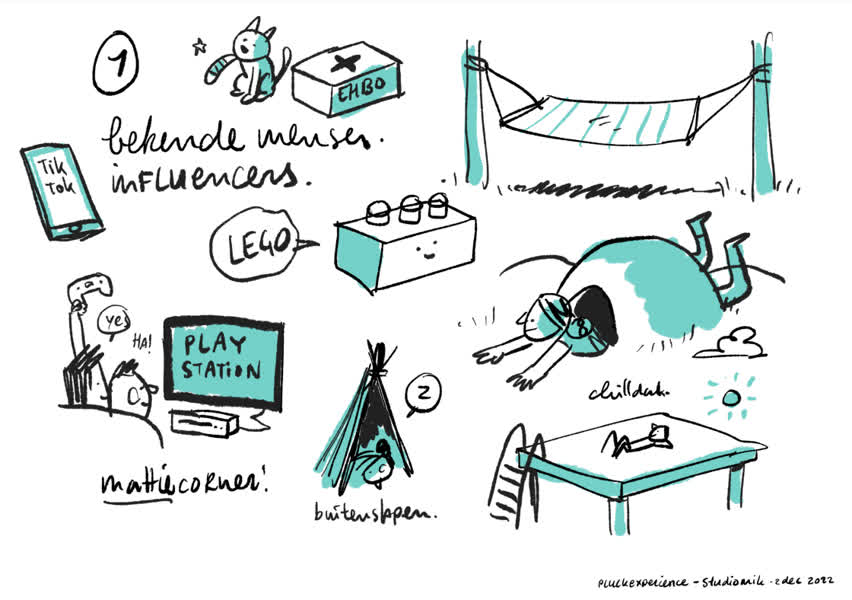 1
EHBO
bekende mensen.
INFLUENCERS.
Tik
Tok
LEGO
yes
HA!
PLAY
STATION
mattiecorner!
z
buitenslapen.
chilldak.
pluckexperience - studiomik - 2dec 2022